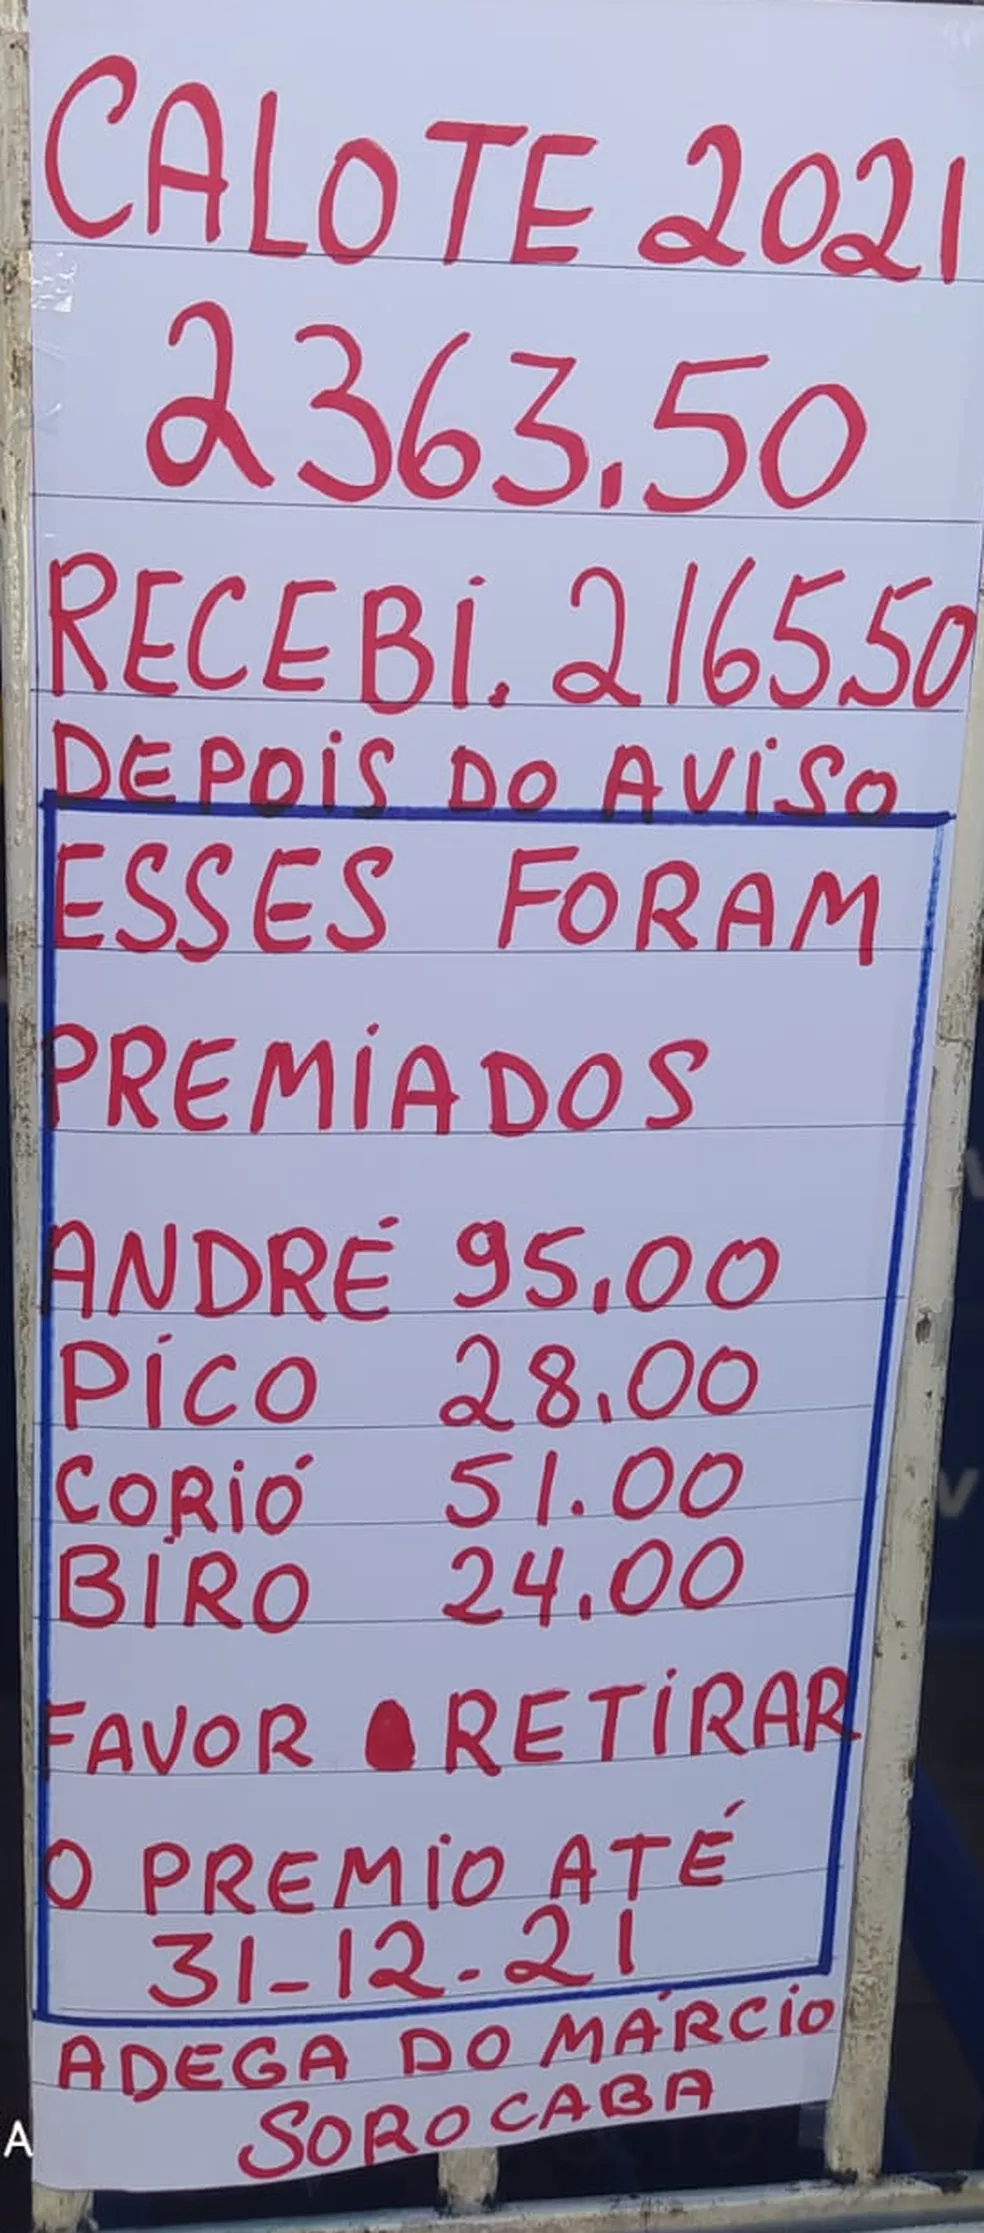 CALOTE 2021
2363,50
RECEBI. 2165,50
DEPOIS DO AVISO
ESSES FORAM
PREMIADOS
ANDRÉ 95,00
PICO 28,00
CORIÓ 51.00
BIRO 24,00
FAVOR RETIRAR
O PREMIO ATÉ
31-12-21
ADEGA DO MÁRCIO
SOROCABA
A